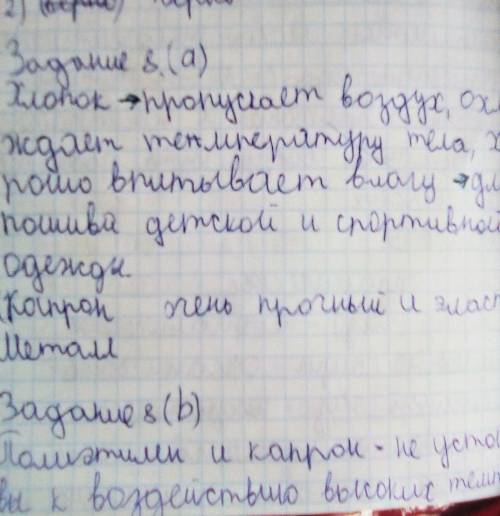 2) (верно) верно
Задание 8.(а)
Хлопок → пропускает воздух, ох
ждает температуру тела, х
рошо впитывает влагу → дл
пошива детской и спортивной
одежды.
Капрон очень прочный и эласт
Металл
Задание 8(b)
Полиэтилен и капрон - не устой
вы к воздействию высоких темп